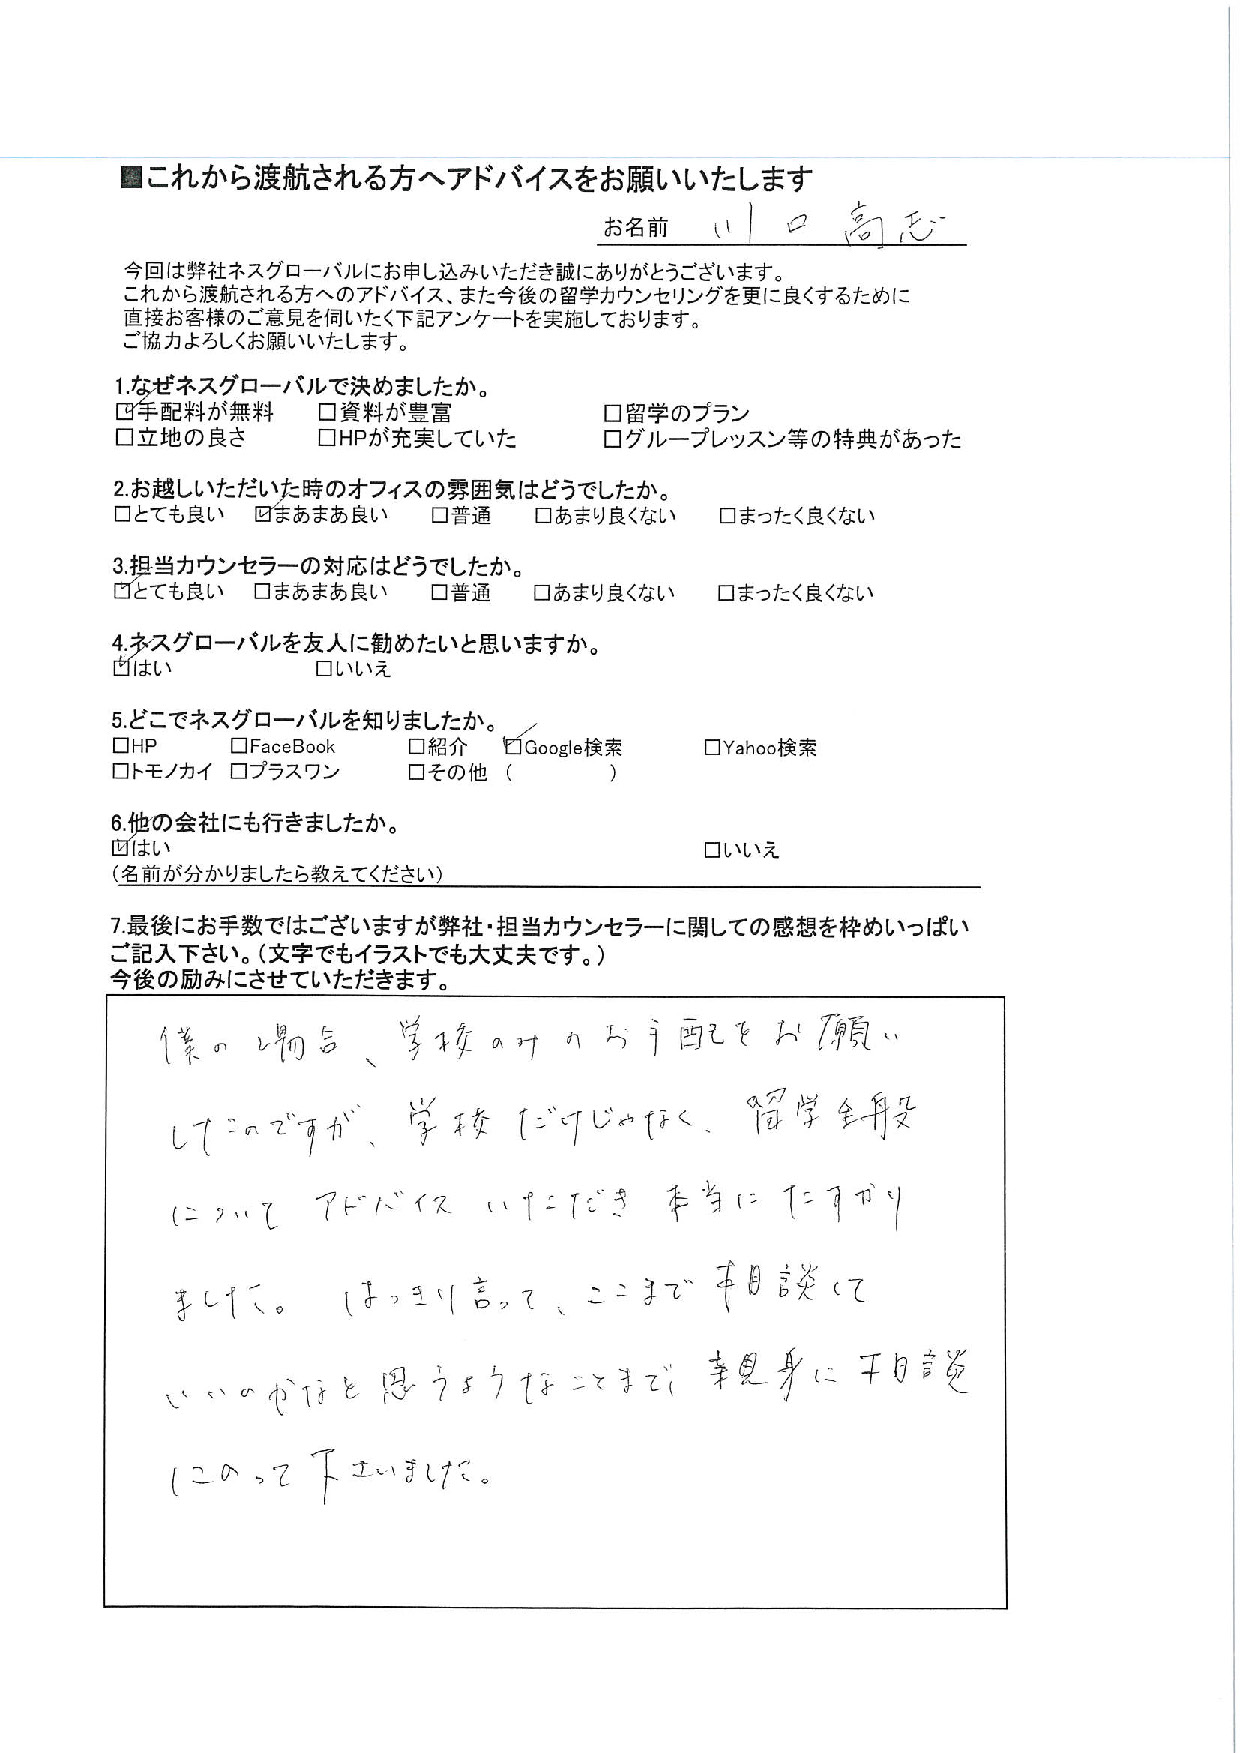 ■これから渡航される方へアドバイスをお願いいたします
お名前 川口高志
今回は弊社ネスグローバルにお申し込みいただき誠にありがとうございます。
これから渡航される方へのアドバイス、また今後の留学カウンセリングを更に良くするために
直接お客様のご意見を伺いたく下記アンケートを実施しております。
ご協力よろしくお願いいたします。
1.なぜネスグローバルで決めましたか。
☑手配料が無料 □資料が豊富 □留学のプラン
□立地の良さ □HPが充実していた □グループレッスン等の特典があった
2.お越しいただいた時のオフィスの雰囲気はどうでしたか。
□とても良い ☑まあまあ良い □普通 □あまり良くない □まったく良くない
3.担当カウンセラーの対応はどうでしたか。
☑とても良い □まあまあ良い □普通 □あまり良くない □まったく良くない
4.ネスグローバルを友人に勧めたいと思いますか。
☑はい □いいえ
5.どこでネスグローバルを知りましたか。
□HP □FaceBook □紹介 ☑Google検索 □Yahoo検索
□トモノカイ □プラスワン □その他 ( )
6.他の会社にも行きましたか。
☑はい □いいえ
(名前が分かりましたら教えてください)
7.最後にお手数ではございますが弊社・担当カウンセラーに関しての感想を枠めいっぱい
ご記入下さい。(文字でもイラストでも大丈夫です。)
今後の励みにさせていただきます。
僕の場合、学校のみのお手配をお願い
したのですが、学校だけじゃなく、留学全般
について アドバイス いただき 本当に たすかり
ました。 はっきり言って、ここまで 相談して
いいのかなと思うようなことまで、親身に相談
にのって下さいました。